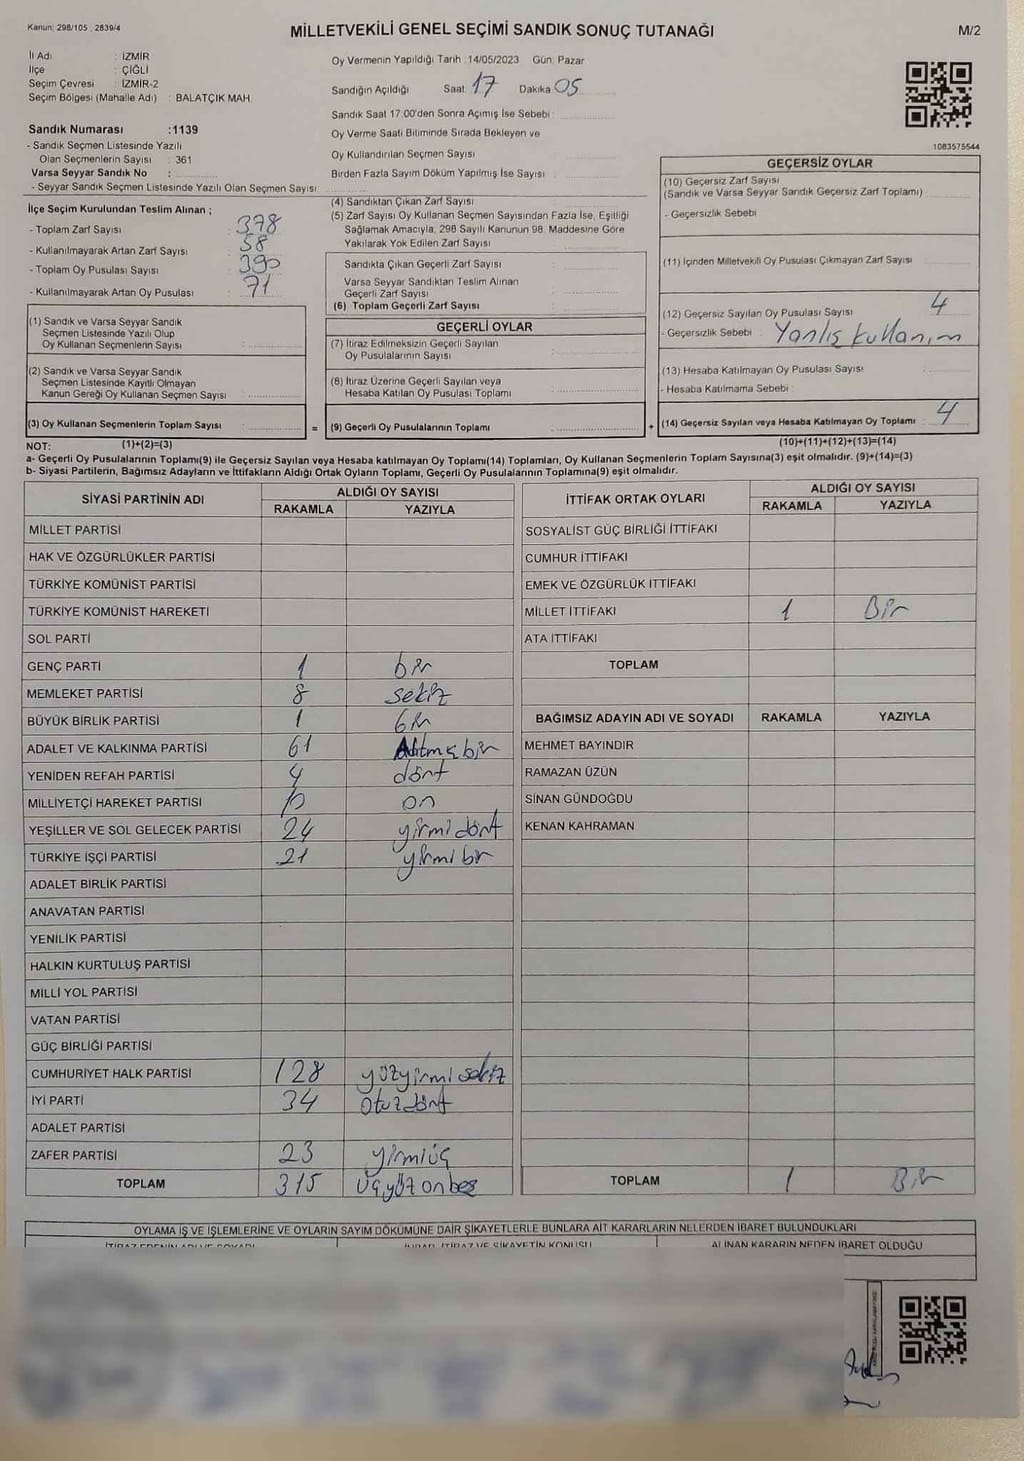 Kanun: 298/105 , 2839/4
MİLLETVEKİLİ GENEL SEÇİMİ SANDIK SONUÇ TUTANAĞI
M/2
İli Adı : İZMİR
İlçe : ÇİĞLİ
Seçim Çevresi : İZMİR-2
Seçim Bölgesi (Mahalle Adı) : BALATÇIK MAH.
Sandık Numarası :1139
- Sandık Seçmen Listesinde Yazılı
Olan Seçmenlerin Sayısı : 361
Varsa Seyyar Sandık No :
- Seyyar Sandık Seçmen Listesinde Yazılı Olan Seçmen Sayısı:
Oy Vermenin Yapıldığı Tarih :14/05/2023 Gün: Pazar
Sandığın Açıldığı Saat: 17 Dakika 05
Sandık Saat 17:00'den Sonra Açımış İse Sebebi :
Oy Verme Saati Bitiminde Sırada Bekleyen ve
Oy Kullandırılan Seçmen Sayısı :
Birden Fazla Sayım Döküm Yapılmış İse Sayısı :
1083575544
İlçe Seçim Kurulundan Teslim Alınan ;
- Toplam Zarf Sayısı : 378
- Kullanılmayarak Artan Zarf Sayısı : 58
- Toplam Oy Pusulası Sayısı : 390
- Kullanılmayarak Artan Oy Pusulası : 71
(1) Sandık ve Varsa Seyyar Sandık
Seçmen Listesinde Yazılı Olup
Oy Kullanan Seçmenlerin Sayısı :
(2) Sandık ve Varsa Seyyar Sandık
Seçmen Listesinde Kayıtlı Olmayan
Kanun Gereği Oy Kullanan Seçmen Sayısı :
(3) Oy Kullanan Seçmenlerin Toplam Sayısı : =
(4) Sandıktan Çıkan Zarf Sayısı :
(5) Zarf Sayısı Oy Kullanan Seçmen Sayısından Fazla İse, Eşitliği
Sağlamak Amacıyla, 298 Sayılı Kanunun 98. Maddesine Göre
Yakılarak Yok Edilen Zarf Sayısı :
Sandıkta Çıkan Geçerli Zarf Sayısı :
Varsa Seyyar Sandıktan Teslim Alınan
Geçerli Zarf Sayısı :
(6) Toplam Geçerli Zarf Sayısı :
GEÇERLİ OYLAR
(7) İtiraz Edilmeksizin Geçerli Sayılan
Oy Pusulalarının Sayısı :
(8) İtiraz Üzerine Geçerli Sayılan veya
Hesaba Katılan Oy Pusulası Toplamı :
(9) Geçerli Oy Pusulalarının Toplamı : +
GEÇERSİZ OYLAR
(10) Geçersiz Zarf Sayısı
(Sandık ve Varsa Seyyar Sandık Geçersiz Zarf Toplamı) :
- Geçersizlik Sebebi :
(11) İçinden Milletvekili Oy Pusulası Çıkmayan Zarf Sayısı :
(12) Geçersiz Sayılan Oy Pusulası Sayısı : 4
- Geçersizlik Sebebi : Yanlış kullanım
(13) Hesaba Katılmayan Oy Pusulası Sayısı :
- Hesaba Katılmama Sebebi :
(14) Geçersiz Sayılan veya Hesaba Katılmayan Oy Toplamı : 4
NOT: (1)+(2)=(3) (10)+(11)+(12)+(13)=(14)
a- Geçerli Oy Pusulalarının Toplamı(9) ile Geçersiz Sayılan veya Hesaba katılmayan Oy Toplamı(14) Toplamları, Oy Kullanan Seçmenlerin Toplam Sayısına(3) eşit olmalıdır. (9)+(14)=(3)
b- Siyasi Partilerin, Bağımsız Adayların ve İttifakların Aldığı Ortak Oyların Toplamı, Geçerli Oy Pusulalarının Toplamına(9) eşit olmalıdır.
SİYASİ PARTİNİN ADI ALDIĞI OY SAYISI
RAKAMLA YAZIYLA
MİLLET PARTİSİ
HAK VE ÖZGÜRLÜKLER PARTİSİ
TÜRKİYE KOMÜNİST PARTİSİ
TÜRKİYE KOMÜNİST HAREKETİ
SOL PARTİ
GENÇ PARTİ 1 bir
MEMLEKET PARTİSİ 8 sekiz
BÜYÜK BİRLİK PARTİSİ 1 bir
ADALET VE KALKINMA PARTİSİ 61 Altmış bir
YENİDEN REFAH PARTİSİ 4 dört
MİLLİYETÇİ HAREKET PARTİSİ 10 on
YEŞİLLER VE SOL GELECEK PARTİSİ 24 yirmi dört
TÜRKİYE İŞÇİ PARTİSİ 21 yirmi bir
ADALET BİRLİK PARTİSİ
ANAVATAN PARTİSİ
YENİLİK PARTİSİ
HALKIN KURTULUŞ PARTİSİ
MİLLİ YOL PARTİSİ
VATAN PARTİSİ
GÜÇ BİRLİĞİ PARTİSİ
CUMHURİYET HALK PARTİSİ 128 yüzyirmi sekiz
İYİ PARTİ 34 otuz dört
ADALET PARTİSİ
ZAFER PARTİSİ 23 yirmiüç
TOPLAM 315 üçyüz onbeş
İTTİFAK ORTAK OYLARI ALDIĞI OY SAYISI
RAKAMLA YAZIYLA
SOSYALİST GÜÇ BİRLİĞİ İTTİFAKI
CUMHUR İTTİFAKI
EMEK VE ÖZGÜRLÜK İTTİFAKI
MİLLET İTTİFAKI 1 Bir
ATA İTTİFAKI
TOPLAM
BAĞIMSIZ ADAYIN ADI VE SOYADI RAKAMLA YAZIYLA
MEHMET BAYINDIR
RAMAZAN ÜZÜN
SİNAN GÜNDOĞDU
KENAN KAHRAMAN
TOPLAM 1 Bir
OYLAMA İŞ VE İŞLEMLERİNE VE OYLARIN SAYIM DÖKÜMÜNE DAİR ŞİKAYETLERLE BUNLARA AİT KARARLARIN NELERDEN İBARET BULUNDUKLARI
İTİRAZ EDENİN ADI VE SOYADI İHBAR, İTİRAZ VE ŞİKAYETİN KONUSU ALINAN KARARIN NEDEN İBARET OLDUĞU